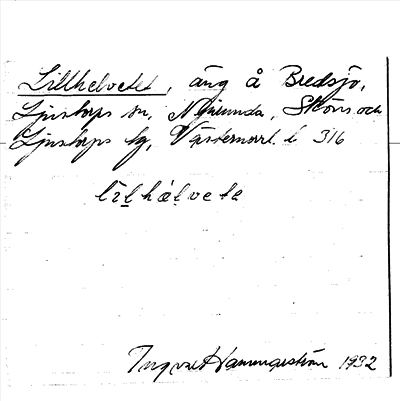 Lillhelvetet, äng å Bredsjö,
Ljustorps sn, Njurunda, Sköns och
Ljustorps tg, Västernorrl. l 316
lìlhálvete
Ingvar Hammarström 1932